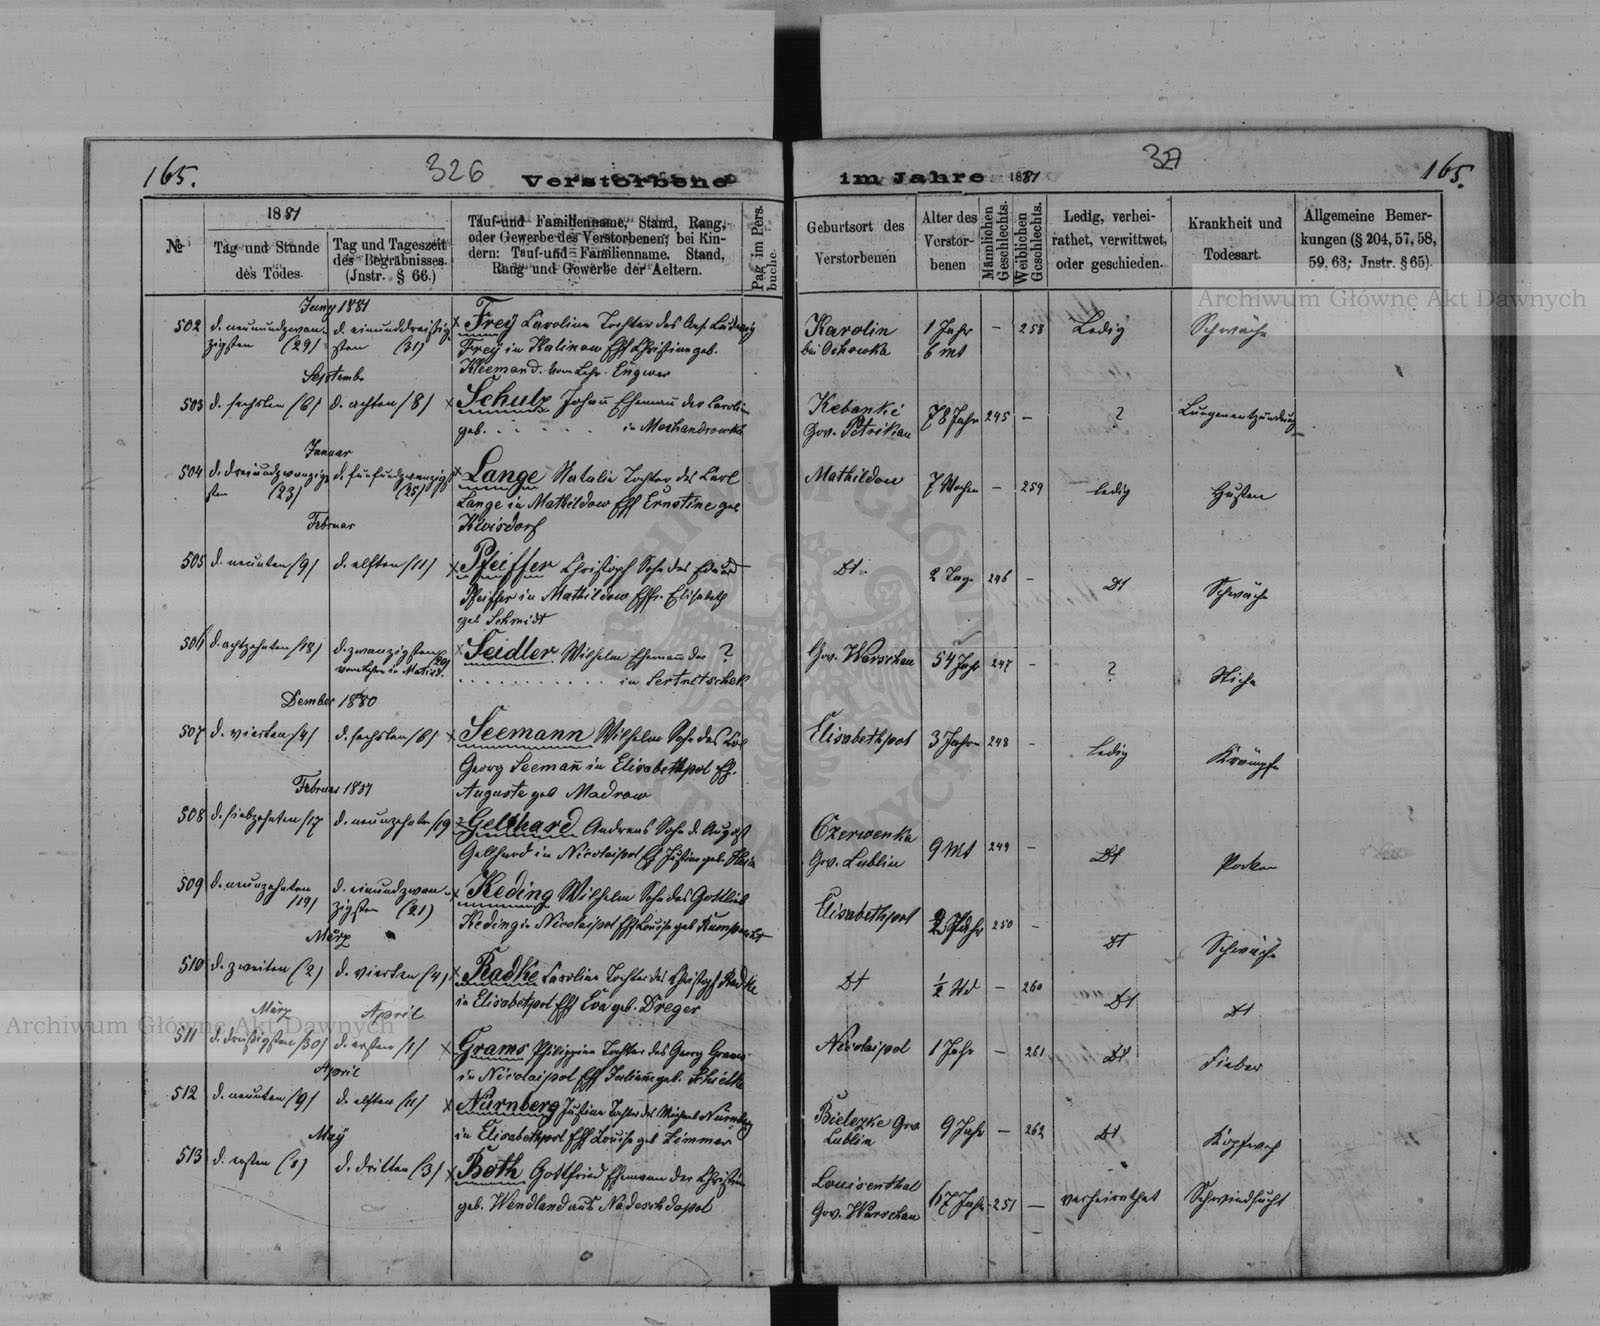 165.
326
327
165.
Verstorbene im Jahre 1881
№
1881
Tag und Stunde des Todes.
Tag und Tageszeit des Begräbnisses. (Jnstr. § 66.)
Tauf- und Familienname, Stand, Rang, oder Gewerbe des Verstorbenen; bei Kindern: Tauf- und Familienname. Stand, Rang und Gewerbe der Aeltern.
Pag. im Pers. buche.
Geburtsort des Verstorbenen
Alter des Verstorbenen
Männlichen Geschlechts.
Weiblichen Geschlechts.
Ledig, verheirathet, verwittwet, oder geschieden.
Krankheit und Todesart.
Allgemeine Bemerkungen (§ 204, 57, 58, 59, 63; Jnstr. § 65).
502 d. neunundzwanzigsten (29) d. einunddreißigsten (31) Frey Carolina Tochter des Ludwig
Frey in Kalinow Christine geb.
Karolin 1 Jahr 6 mt — 258 Ledig Schwäche
Septembr
503 d. sechsten (6) d. achten (8) Schulz Johañ Ehemañ der Carolin
geb. . . . . . in
Gov. Petrikau 78 Jahr 245 — ? Lungenentzündung
Januar
504 d. dreiundzwanzigsten (23) d. fünfundzwanzigst (25) Lange Natalia Tochter des Carl
Lange in Mathildow Eff Ernstine geb
Mathildow 7 Wochen — 259 ledig Husten
Februar
505 d. neunten (9) d. elften (11) Pfeiffer Christoph Sohn des Eduard
Pfeiffer in Mathildow Elisabeth
geb Schmidt
Dt. 2 Tag. 246 — Dt Schwäche
506 d. achtzehnten (18) d. zwanzigsten (20) Seidler Wilhelm Ehemañ der ?
. . . . . . . . . . in
Gov. Warschau 54 Jahr 247 — ?
Dember 1880
507 d. vierten (4) d. sechsten (6) Seemann Wilhelm Sohn des
Georg Seemañ in Elisabethpol
Auguste geb Madrow
Elisabethpol 3 Jahr 248 — ledig Krämpfe
Februar 1881
508 d. siebzehnten (17 d. neunzehnten (19 Gelhard Andreas Sohn d. August
Gelhard in Nicolaipol Justine geb.
Czerwenka
Gov. Lublin 9 Mt 249 — Dt Pocken
509 d. neunzehnten (19) d. einundzwanzigsten (21) Keding Wilhelm Sohn des Gottlieb
Keding in Nicolaipol Eff Louise geb
Elisabethpol 250 — Dt Schwäche
März
510 d. zweiten (2) d. vierten (4) Radke Carolina Tochter des Christoph Radke
in Elisabethpol Eff Eva geb. Dreger
Dt ½ — 260 Dt Dt
März April
511 d. dreißigsten (30) d. ersten (1) Grams Philippine Tochter des Georg Grams
in Nicolaipol Eff Juliañe geb.
Nicolaipol 1 Jahr — 261 Dt Fieber
April
512 d. neunten (9) d. elften (11) Nürnberg Justine Tochter des Michael Nürnberg
in Elisabethpol Eff Louise geb Zimmer
Gov Lublin 9 Jahr — 262 Dt Kopfweh
May
513 d. ersten (1) d. dritten (3) Both Gottfried Ehemann der Christine
geb. Wendland aus Nadeschdapol
Louisenthal
Gov. Warschau 67 Jahr 251 — verheirathet Schwindsucht
Archiwum Główne Akt Dawnych
Archiwum Główne Akt Dawnych